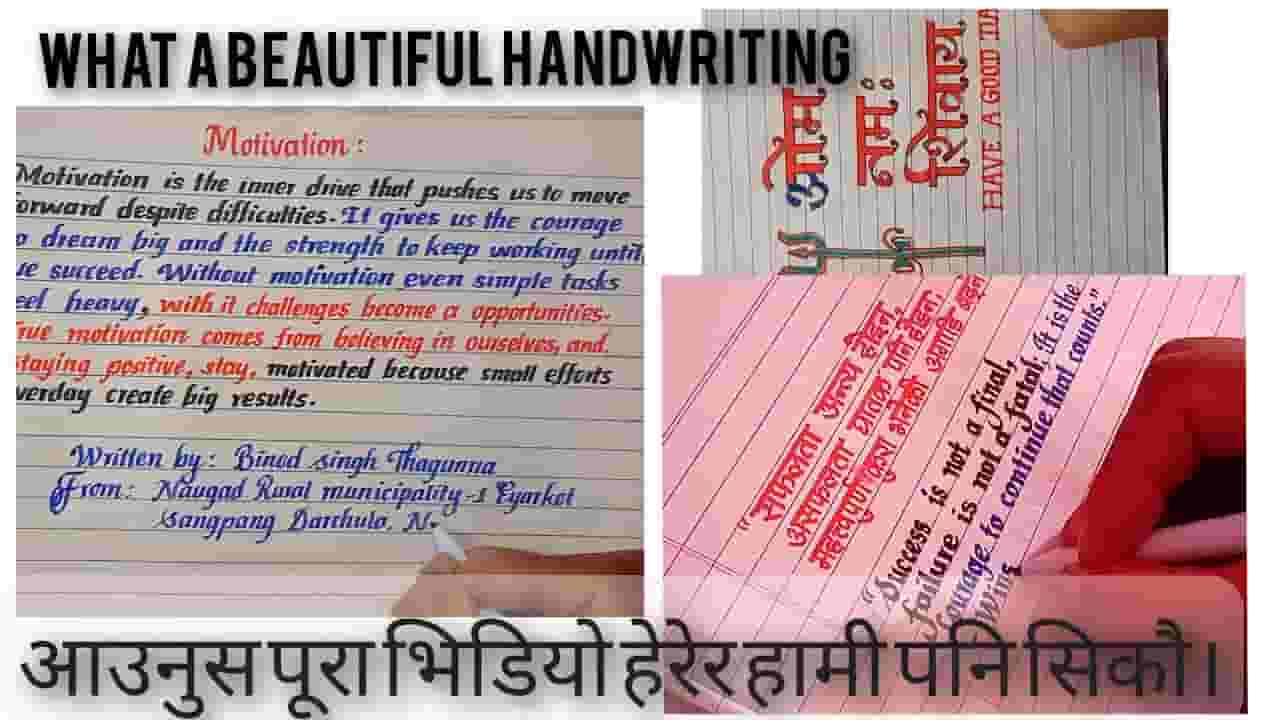 WHAT A BEAUTIFUL HANDWRITING
Motivation :
Motivation is the inner drive that pushes us to move
orward despite difficulties. It gives us the courage
o dream big and the strength to keep working until
ue succeed. Without motivation even simple tasks
eel heavy, with it challenges become a opportunities.
True motivation comes from believing in ourselves, and.
Staying positive, stay, motivated because small efforts
verday create big results.
Written by : Binod singh Thagunna
From : Naugad Rural municipality-1 Eyarkot
Sangpang Darchula, N.
ओम
नमः
शिवाय
HAVE A GOOD
"सफलता अन्त्य होइन,
असफलता घातक पनि होइन।
महत्त्वपूर्ण कुरा भनेको अगाडि बढ्ने
"Success is not a final,
failure is not a fatal. It is the
courage to continue that counts."
Wins
आउनुस पूरा भिडियो हेरेर हामी पनि सिकौ।